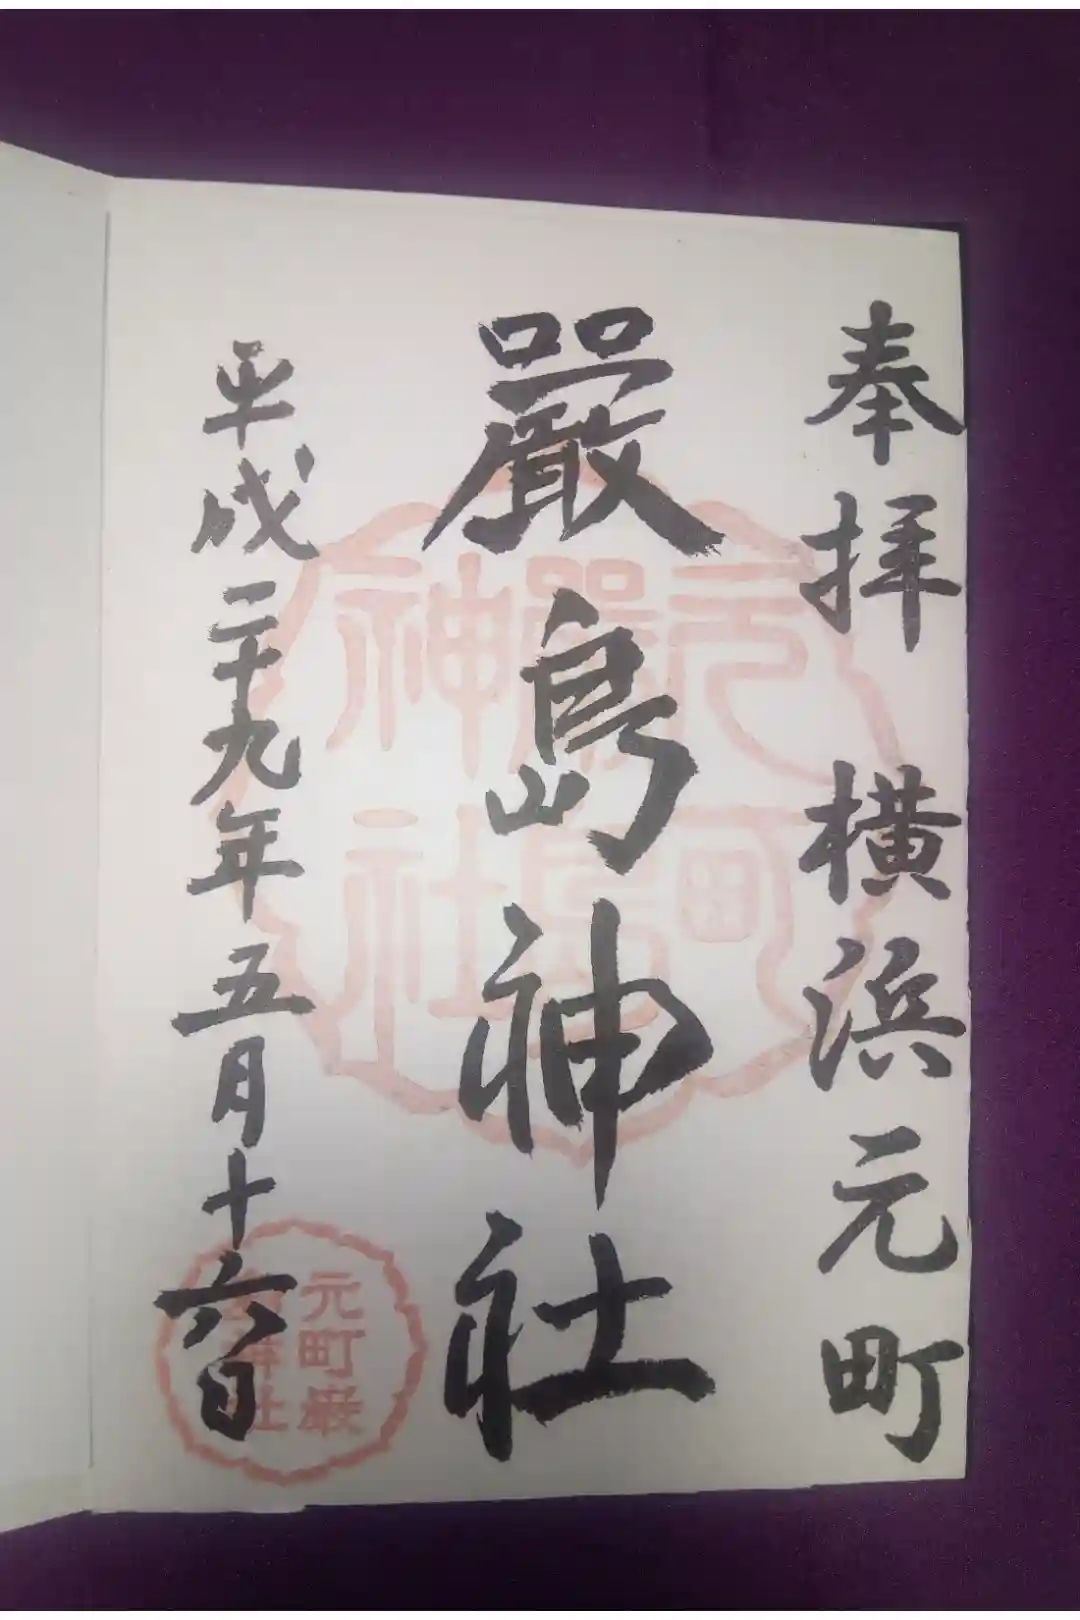 奉拝 横浜元町
嚴島神社
平成二十九年五月十六日
元町
嚴島
神社
元町嚴
島神社